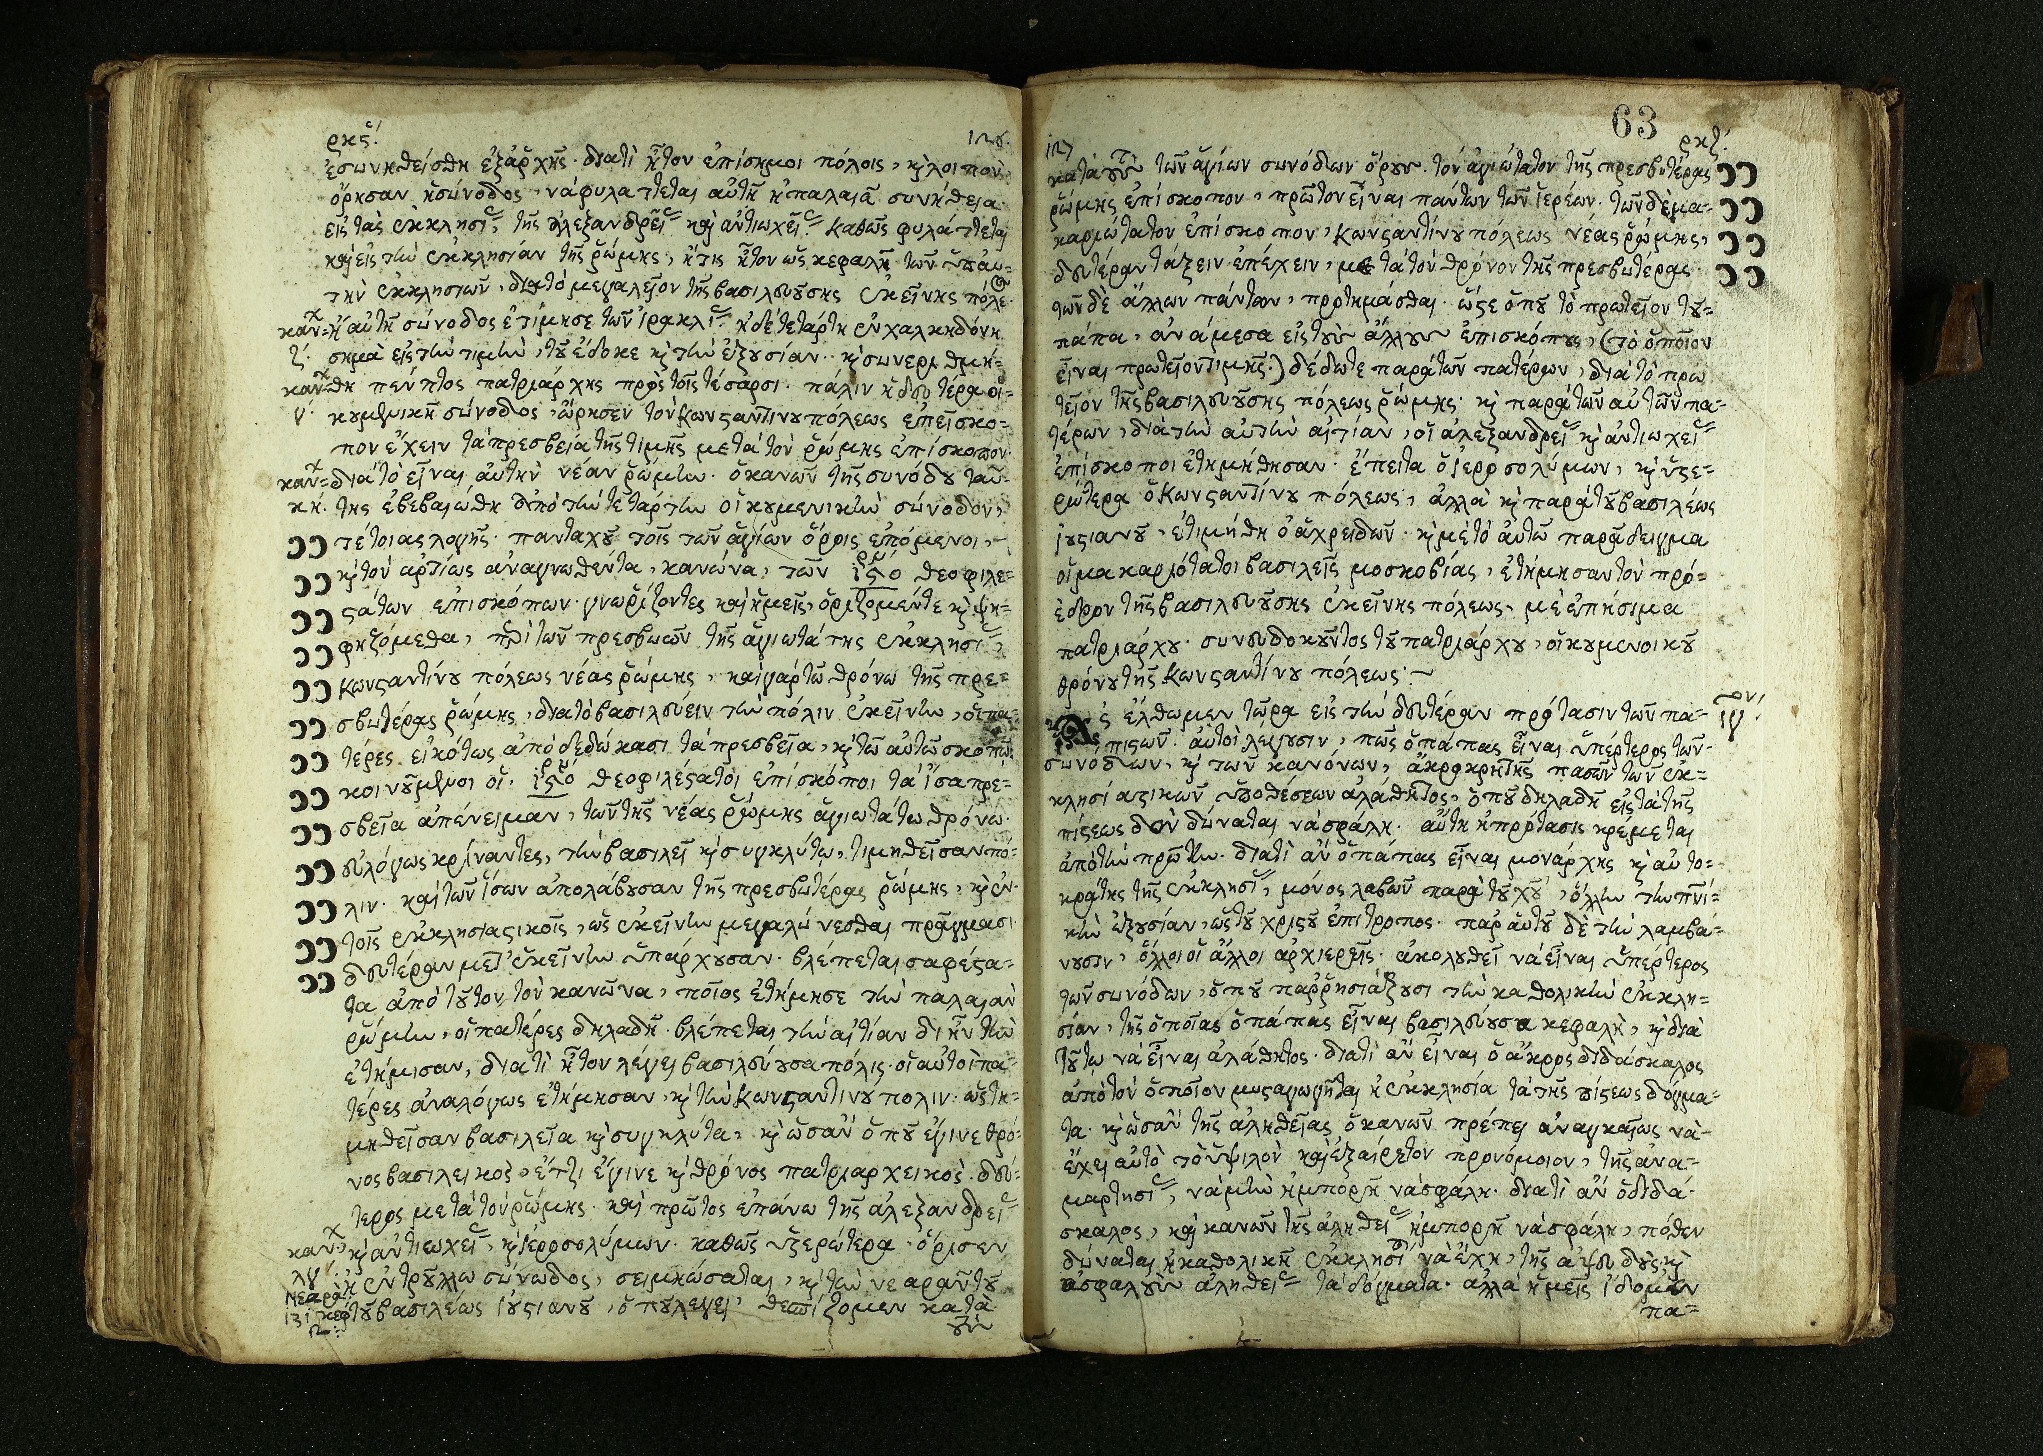 ρκς΄.
126.
ἐσυνηθείσθη ἐξἀρχῆς. διατὶ ἦτον ἐπίσημοι πόλοις, κ̀ λοιπὸν
ὅρησαν ἡσύνοδος, νὰφυλατTεται αὐτῆ ἡπαλαιᾶ συνήθεια
εἰς τὰς ἐκκλησί, τῆς ἀλεξανδρεί καὶ ἀντιωχεί. Καθῶς φυλάττεται
καὶ εἰς τὴν ἐκκλησίαν τῆς ῥώμης, ἥτις ἦτον ὡς κεφαλὴ τῶν
τὴν ἐκκλησιῶν, διατὸ μεγαλεῖον τῆς βασιλευούσης ἐκείνης πόλε
καν ἡ αὐτὴ σύνοδος ἐτίμησε τῶν ἡ δὲ τετάρτη ἐν χαλκηδόνη
ζ΄. εἰς τὴν τιμὴν, τοῦ ἔδοκε κ̀ τὴν ἐξουσίαν. κ̀ συνεριθμή-
καν θη πέμπτος πατριάρχης πρὸς τοῖς τέσαρσι. πάλιν ἡ δευτέρα οἰ-
γ΄. κουμενικὴ σύνοδος, ὥρησεν τὸν Κωνσαντινουπόλεως ἐπείσκο-
πον ἔχειν τὰ πρεσβεια τῆς τιμῆς μετὰ τὸν ῥώμης ἐπίσκοπον
καν διατὸ εἶναι αὐτὴν νέαν ῥώμην. ὁ κανὼν τῆς συνόδου ταύ-
κη. της ἐβεβαιώθη ἀπὸ τὴν τετάρτην οἰκουμενικὴν σύνοδον,
τέτοιας λογῆς. πανταχοῦ τοῖς τῶν ἁγίων ὅροις ἐπόμενοι,
κ̀ τὸν ἀρτίως ἀναγνωθέντα, κανώνα, τῶν θεοφιλε-
ςάτων ἐπισκόπων. γνωρίζοντες καὶ ἡμεῖς, ὁρίζομέντε κ̀ ψη-
φηζόμεθα, περὶ τῶν πρεσβειῶν τῆς ἁγιωτάτης ἐκκλησι,
Κωνσαντίνου πόλεως νέας ῥώμης, καὶ γὰρ τῶ θρόνω τῆς πρε-
σβυτέρας ῥώμης, διατὸ βασιλεύειν τὴν πόλιν ἐκείνην, οἱ πα-
τέρες εἰκότως ἀπὸδεδώκασι τὰ πρεσβεῖα, κ̀ τῶ αὐτῶ σκοπῶ
κοινούμενοι οἱ, θεοφιλέςατοι ἐπίσκόποι τὰ ἴσα πρε-
σβεῖα ἀπένειμαν, τῶν τῆς νέας ῥώμης ἁγιωτάτω θρόνω.
εὐλόγως κρίναντες, τὴν βασιλεῖ κ̀ συγκλύτω, τιμηθεῖσαν πό-
λιν. καὶ τῶν ἴσων ἀπολάβουσαν τῆς πρεσβυτέρας ῥώμης, κ̀ ἐν
τοῖς ἐκκλησιαςικοῖς, ὡς ἐκεῖνιω μεγαλύνεσθαι πράγμασι
δευτέραν μετ' ἐκεῖνην ὑπάρχουσαν. βλέπεται σαφέςα-
τα ἀπὸ τοῦτον τὸν κανῶνα, ποῖος ἐτήμησε τὴν παλαιὰν
ῥώμην, οἱ πατέρες δηλαδὴ. βλέπεται τὴν αἰτίαν δι ἣν τὴν
ἐτήμισαν, διατὶ ἦτον λέγει βασιλεύουσα πόλις. οἱ αὐτοὶ πα-
τέρες ἀναλόγως ἐτήμησαν κ̀ τὴν Κωνςαντινουπολιν. ὡς τη-
μηθεῖσαν βασιλεία κ̀ συγκλύτα, κ̀ ὡσὰν ὁποῦ ἔγινε θρό-
νος βασιλεικὸς, ἔτζι ἔγινε κ̀ θρόνος πατριαρχεικὸς. δεύ-
τερος μετὰ τὸν ῥώμης. καὶ πρῶτος ἐπάνω τῆς ἀλεξανδρεί
καν κ̀ ἀντιωχεί, κ̀ ἱεροσολύμων. καθῶς ὑςερώτερα ὅρισεν
λγ΄. ἡ ἐν τρούλλω σύνωδος, σειμιώσαται, κ̀ τὴν νεαρὰν τοῦ
Νεαρὰ
131 κεφ τοῦ βασιλέως ἰουςιανοῦ, ὁποῦ λέγει, θεσπίζομεν κατὰ
τοὺς
127
63
ρκζ΄.
κατὰ τοὺς τῶν ἁγίων συνόδων ὅρους. τὸν ἁγιώτατον τῆς πρεσβυτέρας
ῥώμης ἐπίσκοπον, πρῶτον εἶναι πάντων τῶν ἱερέων. τῶν δὲ μα-
καριώτατον ἐπίσκοπον, Κωνςαντίνουπόλεως νέας ῥώμης,
δευτέραν τάξειν ἐπέχειν, μετὰ τὸν θρόνον τῆς πρεσβυτέρας
τῶν δὲ ἄλλων πάντων, προτημάσθαι. ὥςε ὁποῦ τὸ πρωτεῖον τοῦ
πάπα, ἀνάμεσα εἰς τοὺς ἄλλους ἐπισκόπους, (τὸ ὁποῖον
εἶναι πρωτεῖον τιμῆς.) δέδωτε παρὰ τῶν πατέρων, διὰ τὸ πρω
τεῖον τῆς βασιλευούσης πόλεως ῥώμης. κ̀ παρὰ τῶν αὐτῶν πα-
τέρων, διὰ τὴν αὐτὴν αἰτίαν, οἱ ἀλεξανδρεί κ̀ ἀντιωχεί
ἐπίσκοποι ἐτημήθησαν. ἔπειτα ὁ ἱεροσολύμων, κ̀ ὑςε-
ρώτερα ὁ Κωνςαντίνου πόλεως, ἀλλὰ κ̀ παρὰ τοῦ βασιλέως
ἰουςιανοῦ, ἐτιμήθη ὁ ἀχρειδῶν. κ̀ μὲ τὸ αὐτῶ παράδειγμα
οἱ μακαριότατοι βασιλεῖς μοσκοβίας, ἐτήμησαν τὸν πρό-
εδρον τῆς βασιλευούσης ἐκείνης πόλεως, μὲ ἐπήσιμα
πατριάρχου. συνευδοκοῦντος τοῦ πατριάρχου, οἰκουμενοικοῦ
θρόνου τῆς Κωνςαντίνου πόλεως. ~
Ας ἔλθωμεν τῶρα εἰς τὴν δευτέραν πρότασιν τῶν πα-
πιςῶν. αὐτοὶ λέγουσιν, πῶς ὁ πάπας εἶναι ὑπέρτερος τῶν
συνόδων, κ̀ τῶν κανόνων, ἄκροκρητῆς πασῶν τῶν ἐκ-
κλησιαςικῶν ὑποθέσεων ἀλάθητος, ὁποῦ δηλαδὴ εἰς τὰ τῆς
πίςεως δὲν δύναται νὰ σφάλη. αὕτη ἡ πρότασις κρέμεται
ἀπὸ τὴν πρῶτιω. διατὶ ἂν ὁ πάπας εἶναι μονάρχης κ̀ αὐτο-
κράτης τῆς ἐκκλησί, μόνος λαβῶν παρὰ τοῦ χῦ, ὅλην τὴν πνί-
κὴν ἐξουσίαν, ὡς τοῦ χριςοῦ ἐπίτροπος. παρ' αὐτοῦ δὲ τὴν λαμβά-
νουσιν, ὅλλοι οἱ ἄλλοι ἀρχιερεῖς. ἀκολουθεῖ νὰ εἶναι ὑπέρτερος
τῶν συνόδων, ὁποῦ παρρησιάζουσι τὴν καθολικὴν ἐκκλη-
σίαν, τῆς ὁποίας ὁ πάπας εἶναι βασιλεύουσα κεφαλὴ, κ̀ διὰ
τοῦτω νὰ εἶναι ἀλάθητος. διατὶ ἂν εἶναι ὁ ἄκρος διδάσκαλος
ἀπὸ τὸν ὁποῖον μυςαγωγῆται ἡ ἐκκλησία τὰ τῆς πίςεως δόγμα-
τα. κ̀ ὡσὰν τῆς ἀληθείας ὁ κανὼν πρέπει ἀναγκαίως νὰ
ἔχει αὐτὸ τὸ ὑψιλὸν καὶ ἐξαίρετον προνόμοιον, τῆς ἀνα-
μαρτησί, νὰ μὴν ἡμπορῆ νὰ σφάλη. διατὶ ἂν ὁ διδά-
σκαλος, καὶ κανὼν τῆς ἀληθεί ἡμπορῆ νὰ σφάλη, πόθεν
δύναται ἡ καθολικὴ ἐκκλησί νὰ ἔχη, τῆς ἀψευδοὺς κ̀
ἀσφαλοὺς ἀληθεί τὰ δόγματα. ἀλλὰ ἡμεῖς ἴδομεν
πα-